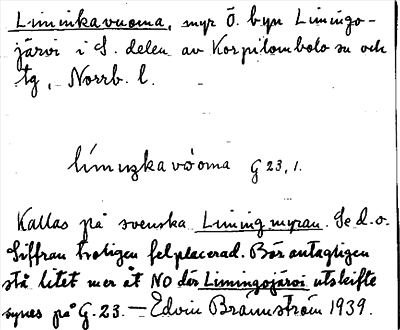 Liminkavuoma, myr Ö. byn Limingo-
järvi i S. delen av Korpilombolo sn och
tg, Norrb. l.
líminzkavòoma G 23, 1.
Kallas på svenska Limingmyran. Se d.o.
Siffran troligen felplacerad. Bör antagligen
stå litet mer åt NO där Limingojärvi utskrifte
synes på G. 23. — Edvin Brännström 1939.